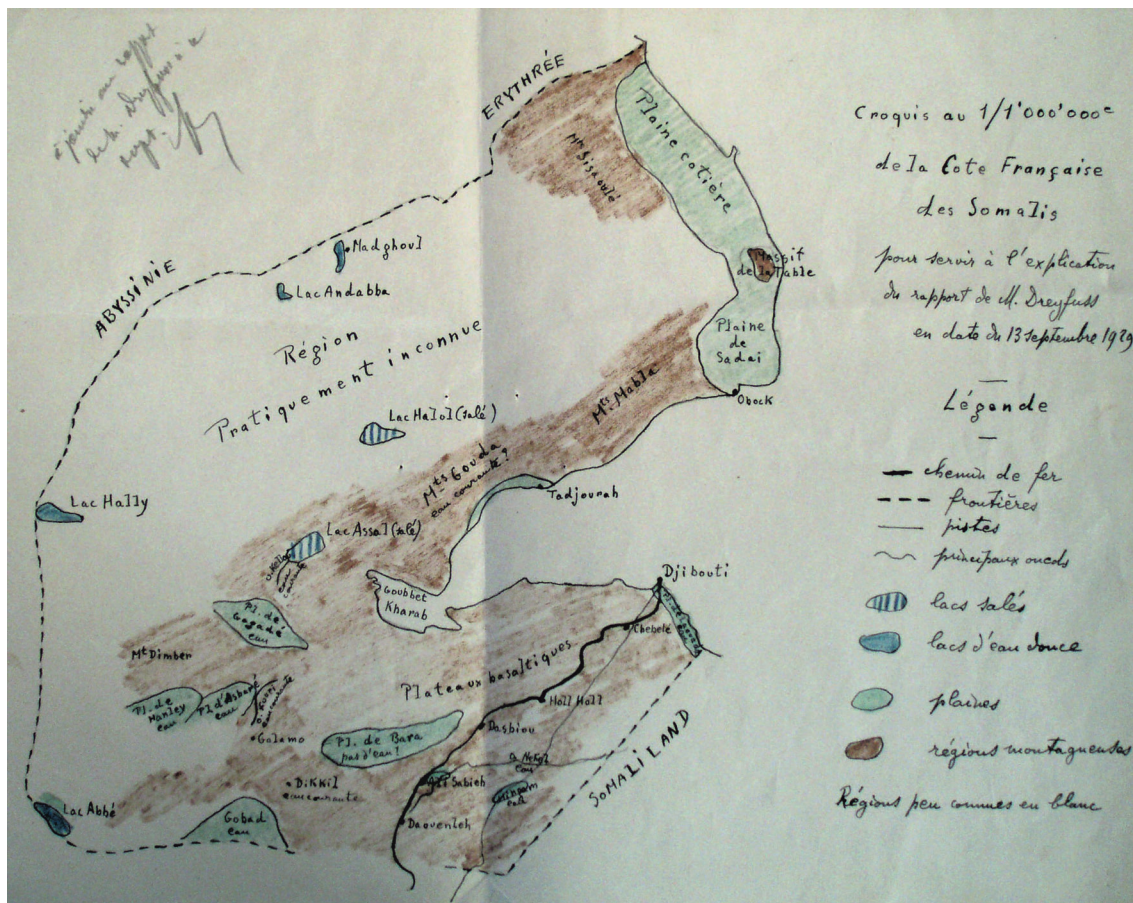 à joindre au rapport
de M. Dreyfuss à ce
sujet.
Croquis au 1/1'000'000e
de la Cote Française
des Somalis
pour servir à l'explication
du rapport de M. Dreyfuss
en date du 13 septembre 1929
Légende
chemin de fer
frontières
pistes
principaux oueds
lacs salés
lacs d'eau douce
plaines
régions montagneuses
Régions peu connues en blanc
ERYTHRÉE
ABYSSINIE
SOMALILAND
Plaine cotière
Mts Sisaoulé
Massif
de la Table
Plaine
de
Sadai
Obock
Madghoul
Lac Andabba
Région
Pratiquement inconnue
Lac Halol (salé)
Mts. Mabla
Mts Gouda
eau courante?
Tadjourah
Lac Hally
Lac Assal (salé)
eau
courante
Goubbet
Kharab
Djibouti
Chebelé
Pl. de
Gagadé
eau
Mt Dimber
Plateaux basaltiques
Holl Holl
Pl. de
Hanley
eau
Pl d'Asbané
eau
eau courante
Galamo
Dasbiou
Pl. de Bara
pas d'eau?
Dikkil
eau courante
Ali Sabieh
eau
eau
Lac Abbé
Gobad
eau
Daouenleh